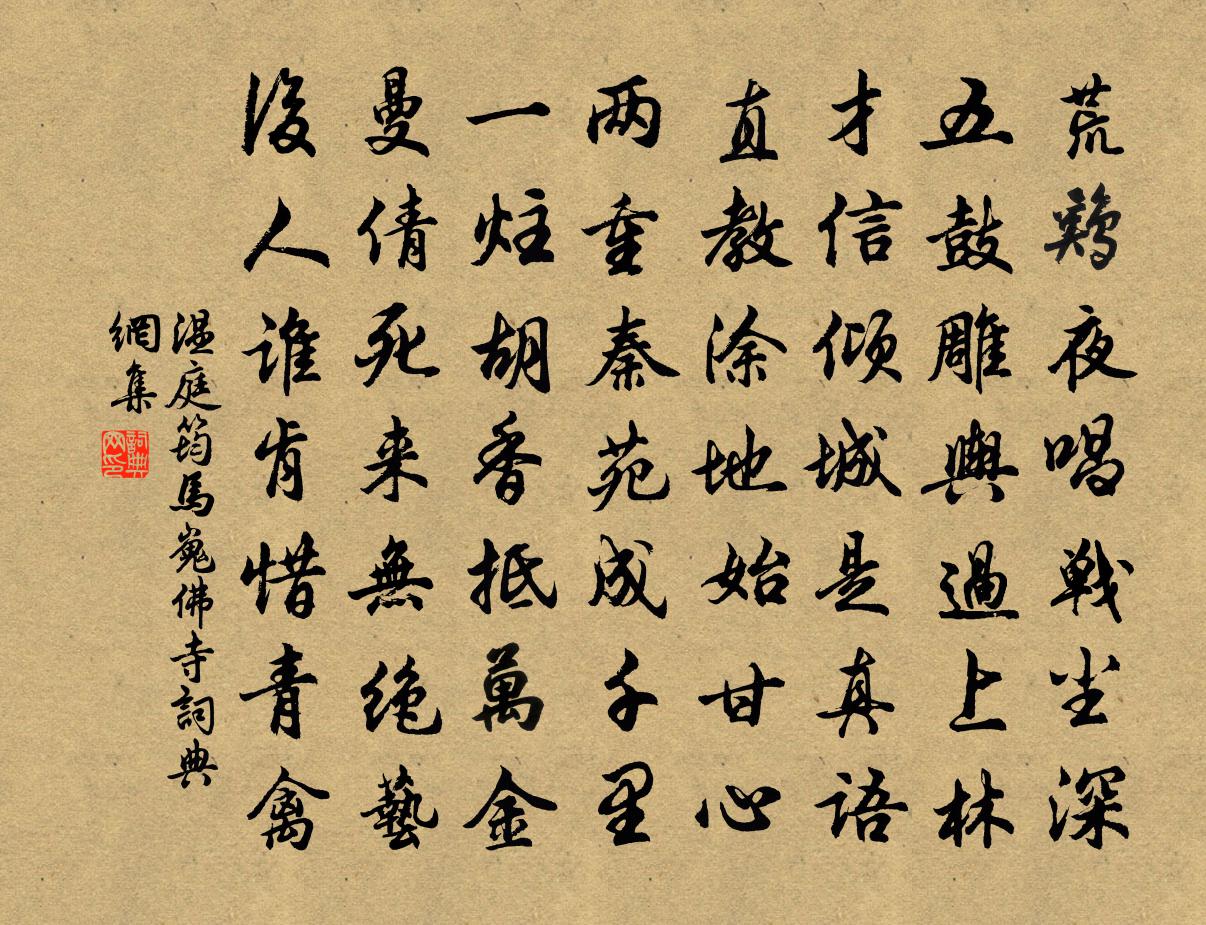 荒鶏夜唱戦尘深
五鼓雕輿過上林
才信倾城是真语
直教涂地始甘心
两重秦苑成千里
一炷胡香抵萬金
曼倩死来無绝藝
後人谁肯惜青禽
温庭筠馬嵬佛寺詞典
網集
詞典网印